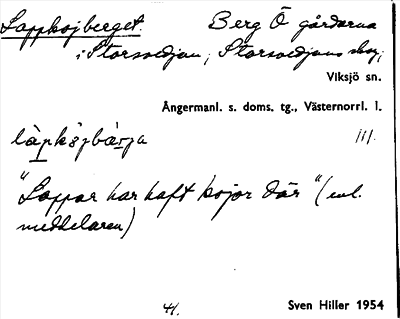 Lappkojberget. Berg Ö gårdarna
i Storsvedjan, Storsvedjans skog;
Viksjö sn.
Ångermanl. s. doms. tg., Västernorrl. l.
III.
"Lappar har haft kojor där" (enl.
meddelaren)
41.
Sven Hiller 1954